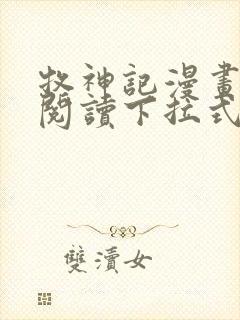 牧神記漫畫
閱讀下拉式
雙瀆女